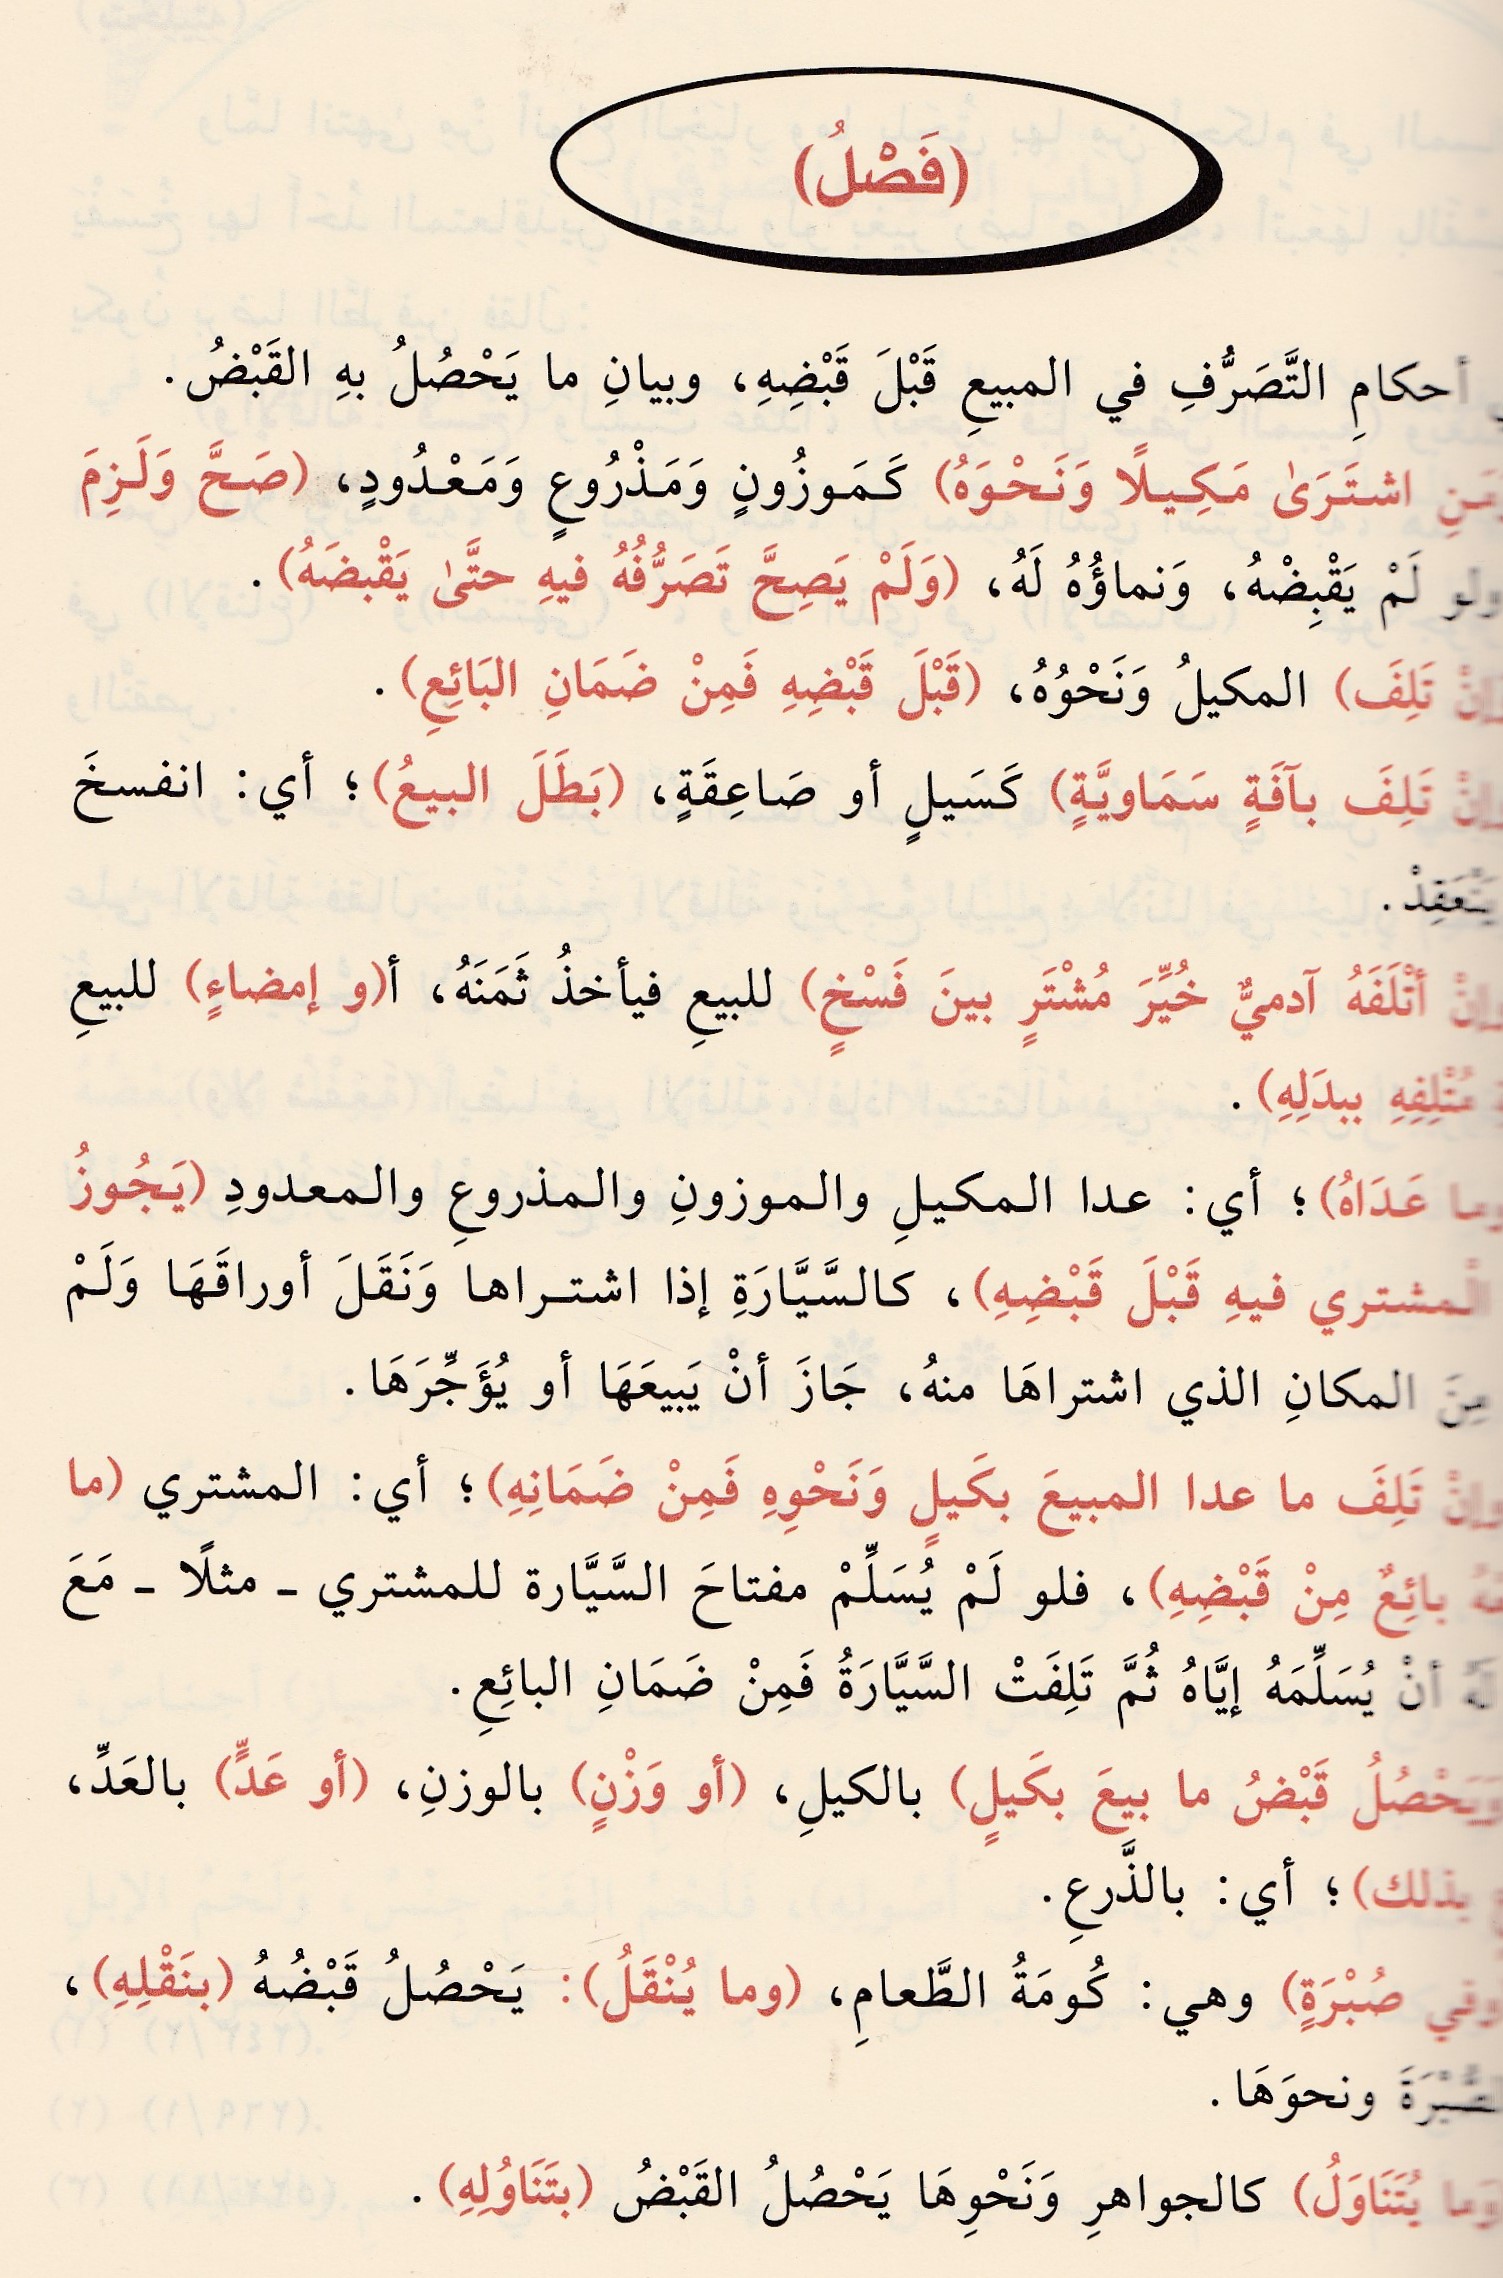 (فَصْلٌ)
أحكامِ التَّصَرُّفِ في المبيعِ قَبْلَ قَبْضِهِ، وبيانِ ما يَحْصُلُ بهِ القَبْضُ.
اشتَرَىٰ مَكِيلًا وَنَحْوَهُ) كَمَوزُونٍ وَمَذْرُوعٍ وَمَعْدُودٍ، (صَحَّ وَلَزِمَ
ولو لَمْ يَقْبِضْهُ، وَنماؤُهُ لَهُ، (وَلَمْ يَصِحَّ تَصَرُّفُهُ فيهِ حتَّىٰ يَقْبضَهُ).
تَلِفَ) المكيلُ وَنَحْوُهُ، (قَبْلَ قَبْضِهِ فَمِنْ ضَمَانِ البَائِعِ).
تَلِفَ بآفَةٍ سَمَاويَّةٍ) كَسَيلٍ أو صَاعِقَةٍ، (بَطَلَ البيعُ)؛ أي: انفسخَ
يَنْعَقِدْ.
أتْلَفَهُ آدميٌّ خُيِّرَ مُشْتَرٍ بينَ فَسْخٍ) للبيعِ فيأخذُ ثَمَنَهُ، أ(و إمضاءٍ) للبيعِ
مُتْلِفِهِ ببدَلِهِ).
وما عَدَاهُ)؛ أي: عدا المكيلِ والموزونِ والمذروعِ والمعدودِ (يَجُوزُ
المشتري فيهِ قَبْلَ قَبْضِهِ)، كالسَّيَّارَةِ إذا اشتراها وَنَقَلَ أوراقَهَا وَلَمْ
مِنَ المكانِ الذي اشتراهَا منهُ، جَازَ أنْ يَبيعَهَا أو يُؤَجِّرَهَا.
وإنْ تَلِفَ ما عدا المبيعَ بكَيلٍ وَنَحْوِهِ فَمِنْ ضَمَانِهِ)؛ أي: المشتري (ما
بائِعٌ مِنْ قَبْضِهِ)، فلو لَمْ يُسَلِّمْ مفتاحَ السَّيَّارة للمشتري ـ مثلًا ـ مَعَ
أنْ يُسَلِّمَهُ إيَّاهُ ثُمَّ تَلِفَتْ السَّيَّارَةُ فَمِنْ ضَمَانِ البائِعِ.
وَيَحْصُلُ قَبْضُ ما بيعَ بكَيلٍ) بالكيلِ، (أو وَزْنٍ) بالوزنِ، (أو عَدٍّ) بالعَدِّ،
بذلك)؛ أي: بالذَّرعِ.
وفي صُبْرَةٍ) وهي: كُومَةُ الطَّعامِ، (وما يُنْقَلُ): يَحْصُلُ قَبْضُهُ (بنَقْلِهِ)،
ونحوَهَا.
وَما يُتَنَاوَلُ) كالجواهرِ وَنَحْوِهَا يَحْصُلُ القَبْضُ (بتَنَاوُلِهِ).